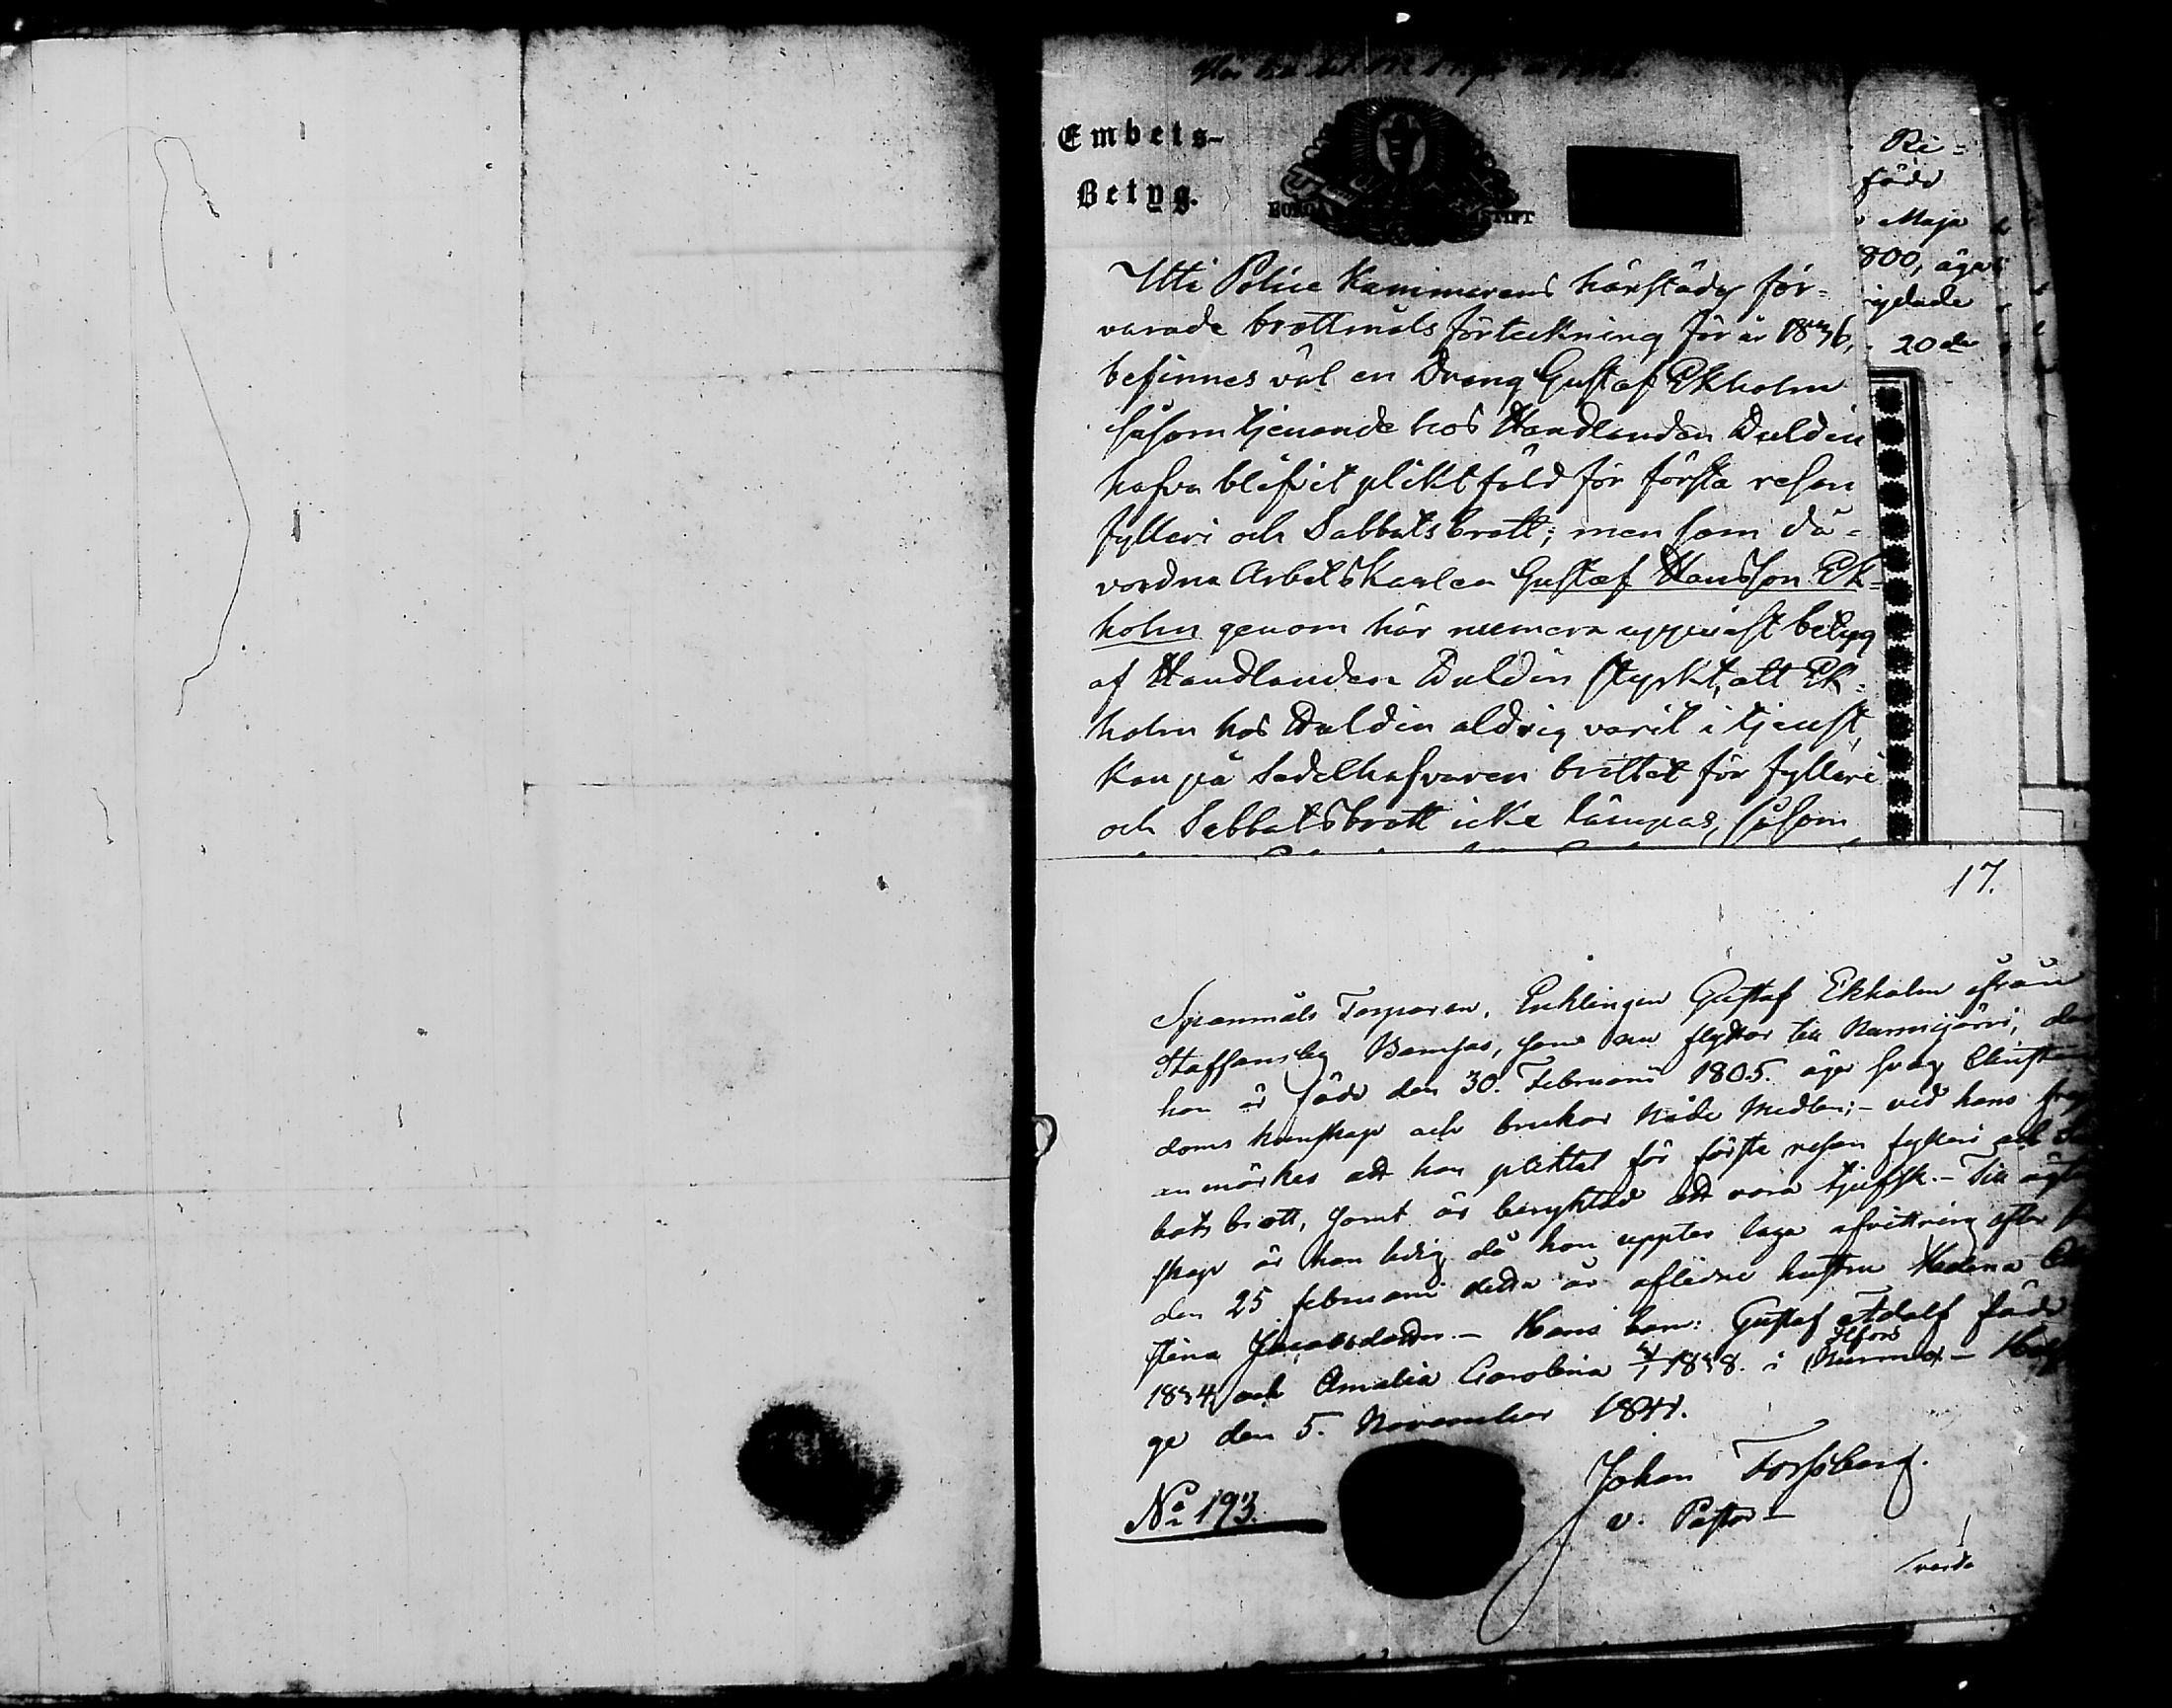 Embets-
Betyg.
BORGÅ STIFT
Uti Police Kammarens härstädes för-
varade brottmåls förteckning för år 1836,
befinnes väl en Dräng Gustaf Ekholm
såsom tjenande hos Handlanden Duldin
hafva blifvit pliktfäld för första resan
fylleri och Sabbatsbrott; men som då-
vordne Arbetskarlen Gustaf Hansson Ek-
holm genom här numera uppvist betyg
af Handlanden Duldin styrkt, att Ek-
holm hos Duldin aldrig varit i tjenst,
kan på Sedelhafvaren brottet för fylleri
och Sabbatsbrott icke lämpas, såsom
Ri-
född
Maja
1800, äger
20de
17.
Spanmåls Torparen, Enklingen Gustaf Ekholm ifrån
Staffansby Bamsas, som nu flyttar till Nurmijärvi, der
han är född den 30. Februarii 1805. äger svag Christen
doms kunskap och brukar Nåde Medlen;- vid hans frejd
anmärkes att han pliktat för första resan fylleri och Sab
bats brott, samt är beryktad att vara tjufsk.- Till äkten
skap är han ledig då han uppter laga afvittring efter
den 25 februarii detta år aflidne hustru Hedvig
Stina Jacobsdotter.- Hans barn: Gustaf Adolf född
1834 och Amalia Carolina 1838. i Hfors
ge den 5. November 1841.
Johan Forssberg.
v. Pastor
No 193.
verte